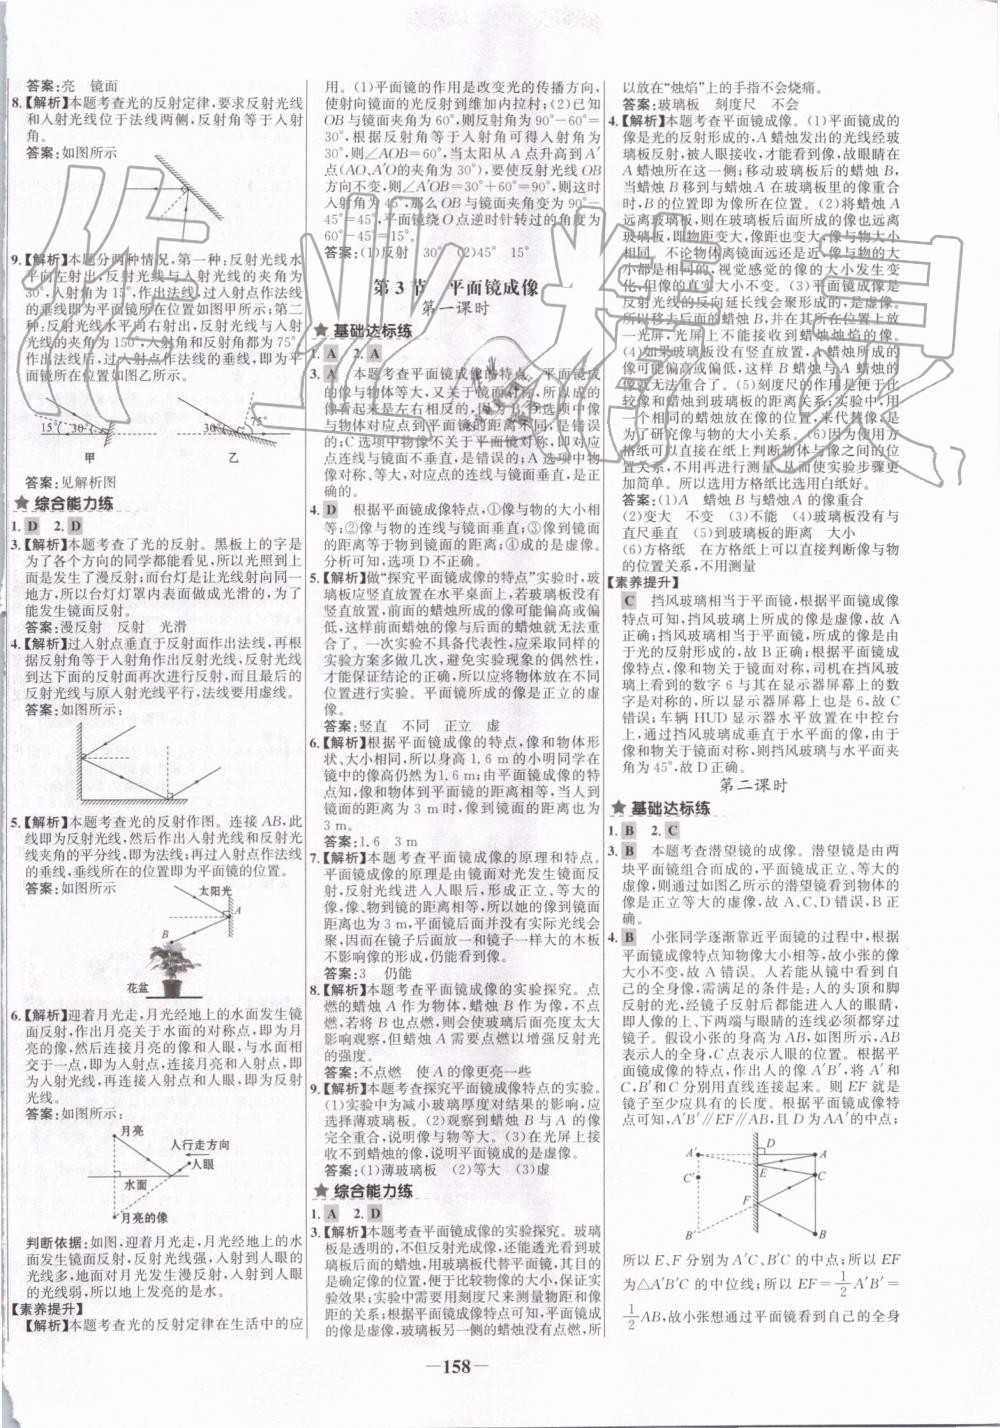 答案:亮　镜面
8.【解析】本题考查光的反射定律,要求反射光线
和入射光线位于法线两侧,反射角等于入射
角。
答案:如图所示
9.【解析】本题分两种情况,第一种:反射光线水
平向左射出,反射光线与入射光线的夹角为
30°,入射角为15°,作出法线,过入射点作法线
的垂线即为平面镜所在位置如图甲所示;第二
种:反射光线水平向右射出,反射光线与入射光
线的夹角为150°,入射角和反射角都为75°,
作出法线后,过入射点作法线的垂线,即为平面
镜所在位置如图乙所示。
15° 30°
甲
30° 75°
乙
答案:见解析图
★ 综合能力练
1. D　2. D
3.【解析】本题考查了光的反射。黑板上的字是
为了各个方向的同学都能看见,所以光照到上
面是发生了漫反射;而台灯是让光线射向同一
地方,所以台灯灯罩内表面做成光滑的,为了使
光线发生镜面反射。
答案:漫反射　反射　光滑
4.【解析】过入射点垂直于反射面作出法线,再根
据反射角等于入射角作出反射光线,反射光线
到达下面的反射面再次进行反射,而且最后的
反射光线与原入射光线平行,法线要用虚线。
答案:如图所示:
5.【解析】本题考查光的反射作图。连接AB,此
线即为反射光线,然后作出入射光线和反射光
线夹角的平分线,即为法线;再过入射点作法线
的垂线,垂线所在的位置即为平面镜的位置。
答案:如图所示
太阳光
A
B
花盆
6.【解析】迎着月光走,月光经地上的水面发生镜
面反射,作出月亮关于水面的对称点,即为月
亮的像,然后连接月亮的像和人眼,与水面相
交于一点,即为入射点,连接月亮和入射点,即
为入射光线,再连接入射点和人眼,即为反射
光线。
答案:如图所示:
月亮
人行走方向
人眼
水面
月亮的像
判断依据:如图,迎着月光走,月光经地上的水
面发生镜面反射,反射光线强,入射到人眼的
光线多,地面对月光发生漫反射,入射到人眼的
光线弱,所以地上发亮的是水。
【素养提升】
【解析】本题考查光的反射定律在生活中的应
用。(1)平面镜的作用是改变光的传播方向,
使射向镜面的光反射到维加内拉村;(2)已知
OB与镜面夹角为60°,则反射角为90°－60°＝
30°,根据反射角等于入射角可得入射角为
30°,则∠AOB＝60°,当太阳从A点升高到A′
点(AO、A′O的夹角为30°),要使反射光线OB
方向不变,则∠A′OB＝30°＋60°＝90°,则这时
入射角为45°,那么OB与镜面夹角变为90°－
45°＝45°,平面镜绕O点逆时针转过的角度为
60°－45°＝15°。
答案:(1)反射　30°　(2)45°　15°
第3节　平面镜成像
第一课时
★ 基础达标练
1. A　2. A
3. A　本题考查平面镜成像的特点。平面镜成
的像与物体等大,又关于镜面对称,所以成的
像看起来是左右相反的,因为B、D选项中像
与物体对应点到平面镜的距离不同,是错误
的;C选项中物像不关于平面镜对称,即对应
点连线与镜面不垂直,是错误的;A选项中物
像对称,大小相等,对应点的连线与镜面垂直,是正
确的。
4. D　根据平面镜成像特点,①像与物的大小相
等;②像与物的连线与镜面垂直;③像到镜面
的距离等于物到镜面的距离;④成的是虚像。
分析可知,选项D不正确。
5.【解析】做“探究平面镜成像的特点”实验时,玻
璃板应竖直放置在水平桌面上,若玻璃板没有
竖直放置,前面的蜡烛所成的像可能偏高或偏
低,这样前面蜡烛的像与后面的蜡烛就无法重
合了。一次实验不具备代表性,应采取同样的
实验方案多做几次,避免实验现象的偶然性,
才能保证结论的正确,所以应将物体放在不同
位置进行实验。平面镜所成的像是正立的虚
像。
答案:竖直　不同　正立　虚
6.【解析】根据平面镜成像的特点,像和物体形
状、大小相同,所以身高1.6 m的小明同学在
镜中的像高仍然为1.6 m;由平面镜成像的特
点知,像和物体到平面镜的距离相等,当人到
镜面的距离为3 m时,像到镜面的距离也为
3 m。
答案:1.6　3 m
7.【解析】本题考查平面镜成像的原理和特点。
平面镜成像的原理是由镜面对光发生镜面反
射,反射光线进入人眼后,形成正立、等大的
像,像、物到镜的距离相等,所以她的像到镜面
距离也为3 m,平面镜后面并没有实际光线会
聚,因而在镜子后面放一和镜子一样大的木板
不影响像的形成,仍能看到像。
答案:3　仍能
8.【解析】本题考查平面镜成像实验探究。点
燃的蜡烛A作为物体,蜡烛B作为像,不点
燃,若将B也点燃,则会使玻璃后面亮度太大
影响观察,但蜡烛A需要点燃以增强反射光
的强度。
答案:不点燃　使A的像更亮一些
9.【解析】本题考查探究平面镜成像特点的实验。
(1)实验中为减小玻璃厚度对结果的影响,应
选择薄玻璃板。(2)观察到蜡烛B与A的像
完全重合,说明像与物等大。(3)在光屏上接
收不到蜡烛的像,说明像是虚像。
答案:(1)薄玻璃板　(2)等大　(3)虚
★ 综合能力练
1. A　2. D
3.【解析】本题考查平面镜成像的实验探究。玻璃
板是透明的,不仅反射光成像,还能透光看到玻
璃板后面的蜡烛,用玻璃板代替平面镜,其目的
是确定像的位置,便于比较像物的大小,保证实
验效果;实验中要用刻度尺来测量物距和像距
的大小关系。根据平面镜成像特点可知,平面镜成
的像是虚像,玻璃板后面的蜡烛没有点燃,所
以放在“烛焰”上的手指不会烧痛。
答案:玻璃板　刻度尺　不会
4.【解析】本题考查平面镜成像。(1)平面镜成的
像是光的反射形成的,A蜡烛发出的光线经玻
璃板反射,被人眼接收,才能看到像,故眼睛在
A蜡烛所在这一侧;移动玻璃板后的蜡烛B,
当蜡烛B移到与蜡烛A在玻璃板里的像重合
时,B的位置即为像所在位置。(2)将蜡烛A
远离玻璃板,则在玻璃板后面所成的像也远离
玻璃板,即物距变大,像距也变大,像与物大小
相同,不论物体离镜面远还是近,像与物的大
小都是相同的,视觉感觉的像的大小虽有变化,
但像的真实大小不变。(3)平面镜成像是
反射光线的反向延长线会聚形成的,是虚像。
所以移去后面的蜡烛B,并在其所在位置上放
一光屏,光屏不能接收到蜡烛烛焰的像。
(4)如果玻璃板没有竖直放置,A蜡烛所成的
像可能偏高或偏低,这样A蜡烛的像与B蜡烛
像就无法重合了。(5)刻度尺的作用是便于比
较像和蜡烛到玻璃板的距离关系;实验中,用
两个相同的蜡烛放在像的位置,来代替像,是
为了研究像与物的大小关系。(6)因为使用方
格纸可以直接在纸上判断物体与像之间的位
置关系,不用再进行测量,从而使实验步骤更
加简单。所以选用方格纸比选用白纸好。
答案:(1)A　蜡烛B与蜡烛A的像重合
(2)变大　不变　(3)不能　(4)玻璃板没有与
直尺垂直　(5)到玻璃板的距离
(6)方格纸　在方格纸上可以直接判断像与物
的位置关系,不用测量
【素养提升】
C　挡风玻璃相当于平面镜,根据平面镜成像
特点可知,挡风玻璃上所成的像是虚像,故A
正确;挡风玻璃相当于平面镜,所成的像是由
于光的反射形成的,故B正确;根据平面镜成
像特点,像和物关于镜面对称,司机在挡风玻
璃上看到的数字6与其在显示器屏幕上的数
字是对称的,所以显示器屏幕上也是6,故C
错误;车辆HUD显示器水平放置在中控台
上,通过挡风玻璃成垂直于水平面的像,由于
像和物关于镜面对称,则挡风玻璃与水平面夹
角为45°,故D正确。
第二课时
★ 基础达标练
1. B　2. C
3. B　本题考查潜望镜的成像。潜望镜是由两
块平面镜组合而成的,平面镜成正立、等大的
虚像,则通过如图乙所示的潜望镜看到物体的
像是正立等大的虚像,故A、C、D错误,B正
确。
4. B　小张同学逐渐靠近平面镜的过程中,根据
平面镜成像特点知物像大小相等,故小张的像大
小不变,故A错误。人能从镜中看到自
己的全身像,需满足的条件是:人的头顶和脚
反射的光,经镜子反射后都能进入人的眼睛,
即人像的上、下两端与眼睛的连线必须都穿过
镜子。假设小张的身高为AB,如图所示,AB
表示人的全身,C点表示人眼的位置。根据平
面镜成像的特点,作出人的像A′B′,将A′和
C、B′和C分别用直线连接起来。则EF就是
镜子至少应具有的长度。根据平面镜成像特
点可知,A′B′∥EF∥AB,且D为AA′的中点;
D
A′ A
E
C′ C
F
B′ B
所以E、F分别为A′C、B′C的中点;所以EF
为△A′B′C的中位线;所以EF＝1/2A′B′＝
1/2AB,故小张想通过平面镜看到自己的全身
—158—
作业精灵